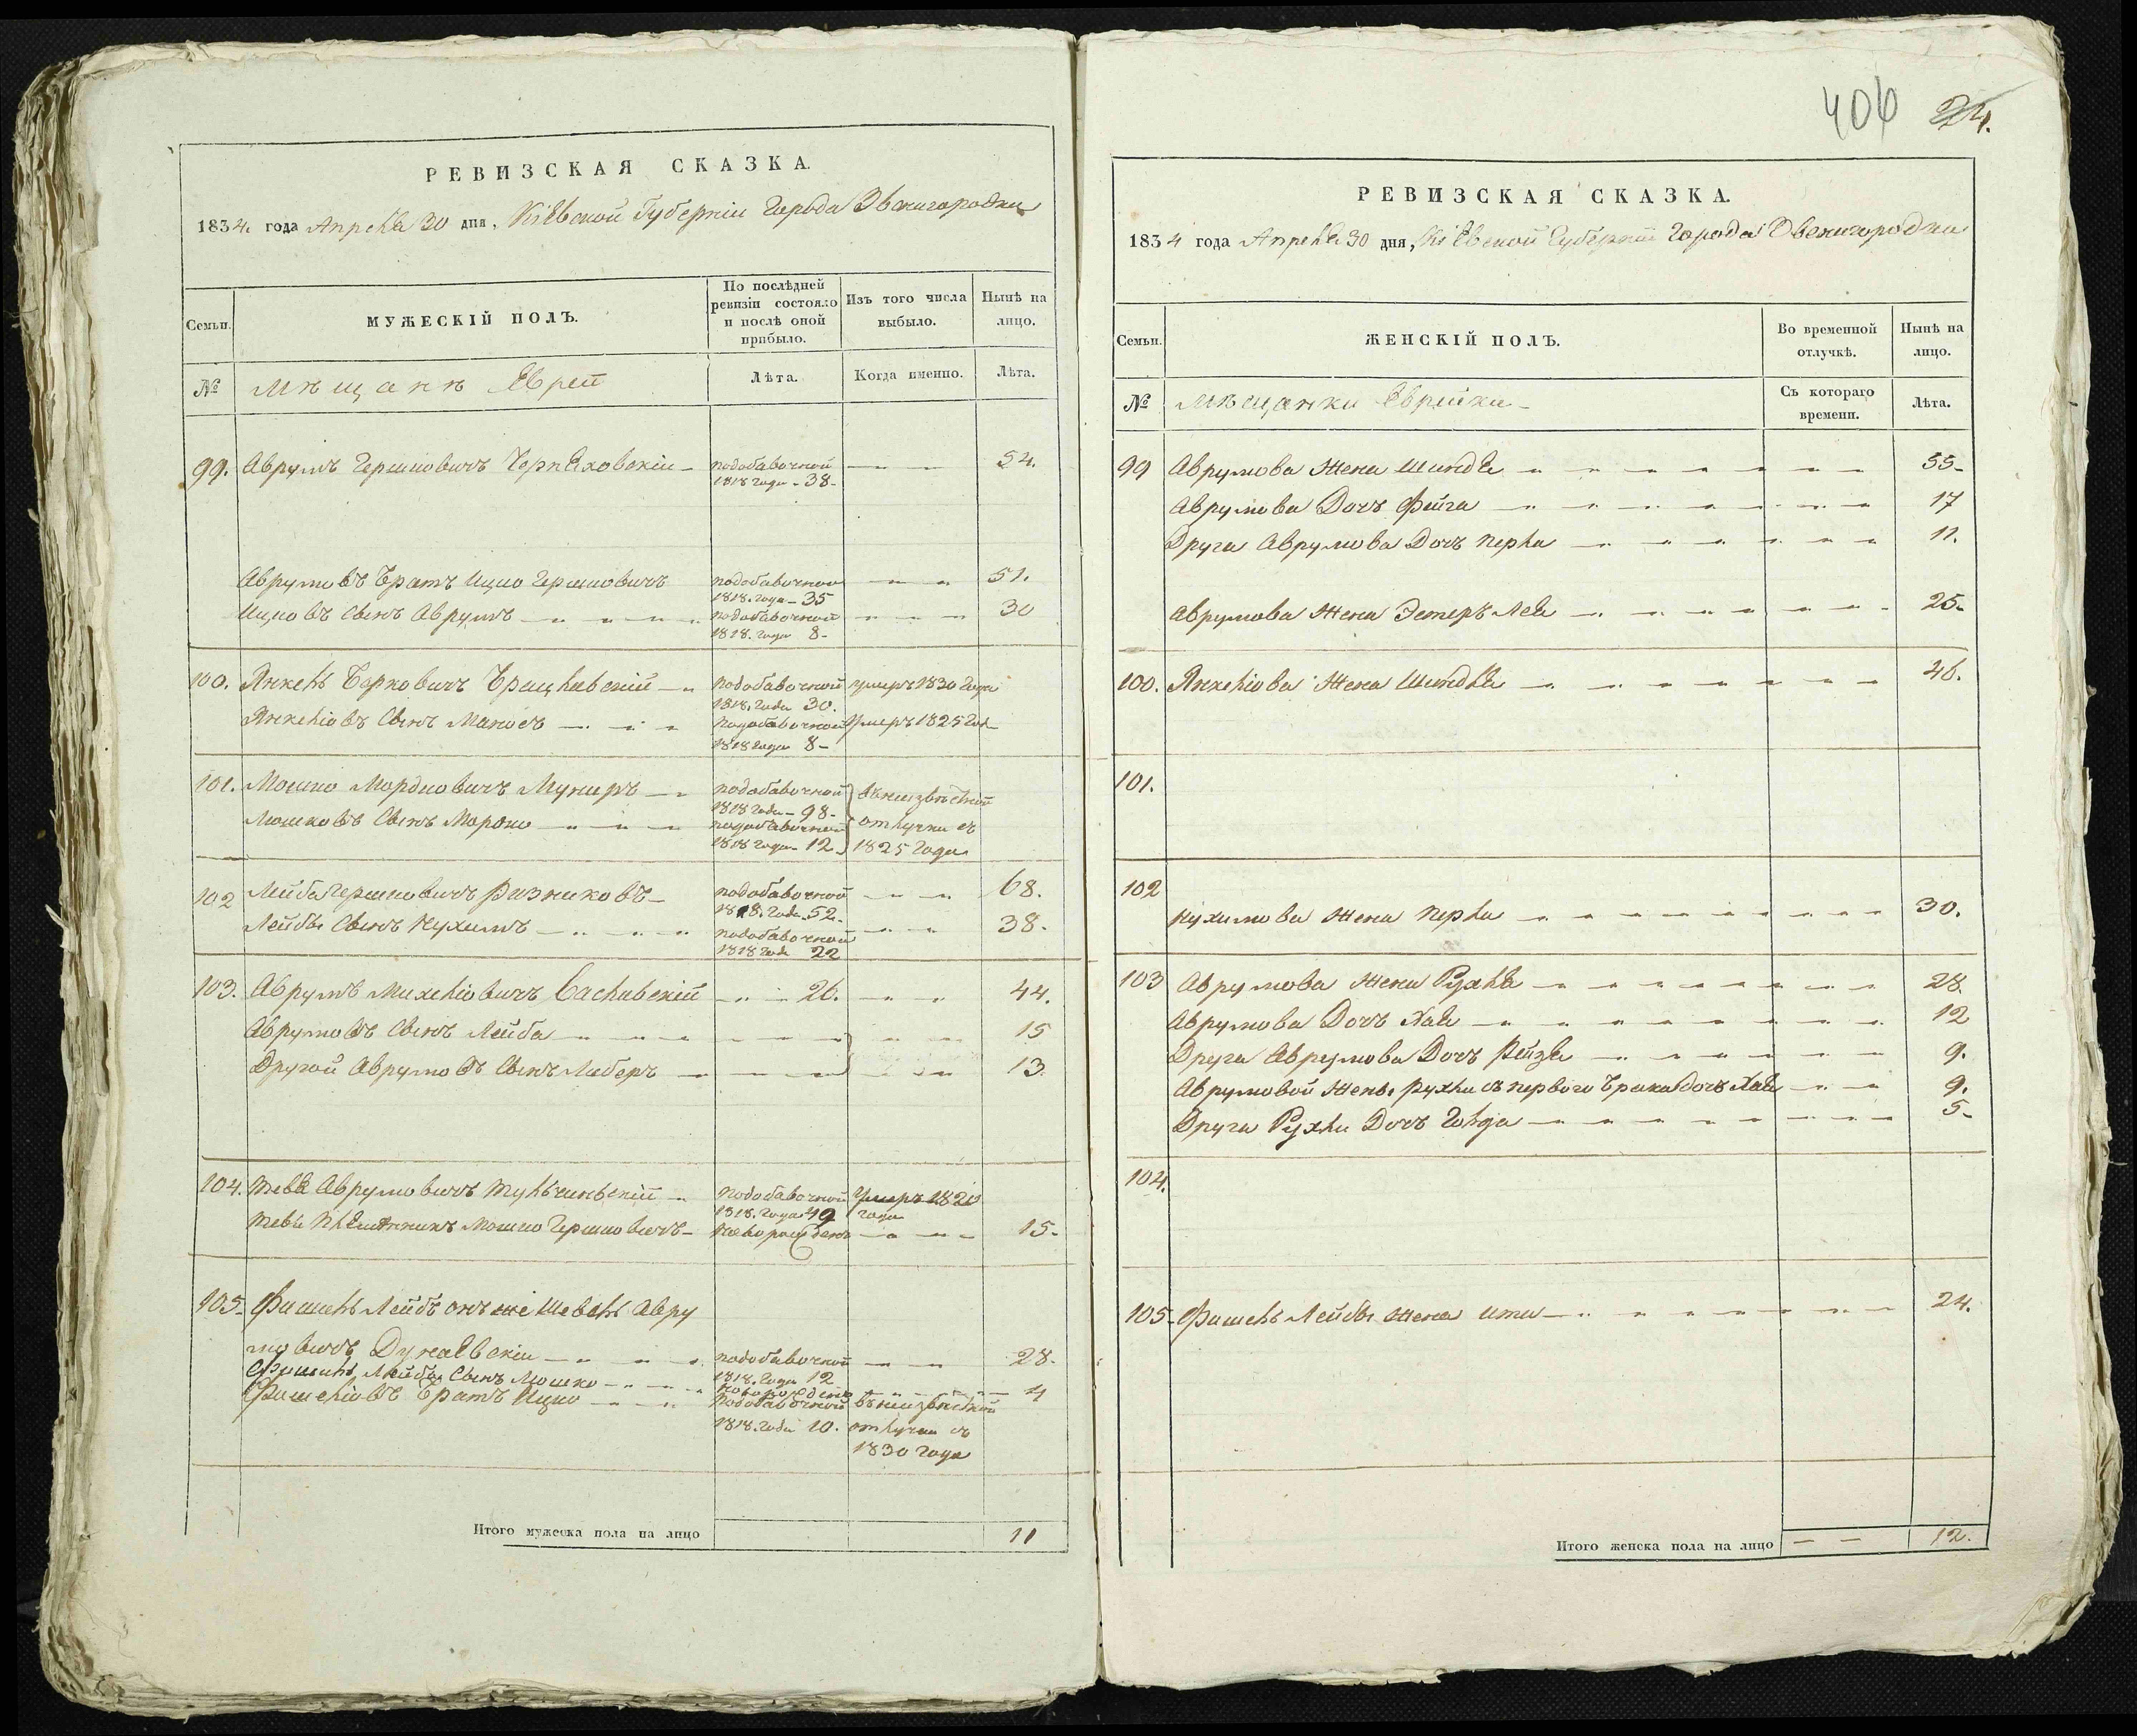 РЕВИЗСКАЯ СКАЗКА.
1834. года Апреля 30 дня, Кіевской Губерніи Города Звенигородки
Семьи.
МУЖЕСКІЙ ПОЛЪ.
По послѣдней ревизіи состояло и послѣ оной прибыло.
Изъ того числа выбыло.
Нынѣ на лицо.
№
Мѣщанѣ Евреи
Лѣта.
Когда именно.
Лѣта.
99. Аврумъ Гершковичъ Черняховскій подобавочной 54.
1818 года - 38-
Аврумовъ Братъ Ицко Гершковичъ подобавочной 51.
1818. года - 35
Ицковъ Сынъ Аврумъ подобавочной 30
1818. года 8-
100. Янкель Берковичъ Брацлавскій подобавочной умеръ 1830 года
1818. Года 30.
Янкеліовъ Сынъ Маносъ подобавочной умеръ 1825 год
1818 года 8-
101. Мошко Мордковичъ подобавочной въ неизвѣстной
1818 года - 98-
Мошковъ Сынъ подобавочной отлучки съ
1818 года - 12 1825 года
102 Лейба Гершковичъ Ризниковъ подобавочной 68.
1818. Года 52-
Лейбы Сынъ Нухимъ подобавочной 38.
1818 года 22
103. Аврумъ Михеліовичъ Саславскій 26. 44.
Аврумовъ Сынъ Лейба 15
Другой Аврумовъ Сынъ Либеръ 13.
104. Тевя Аврумовичъ Тульчинскій подобавочной Умеръ 1820
1818. года 49 года
Тевы Племянникъ Мошко Гершковичъ новорожденъ 15-
105- Фишель Лейбъ онъ же Шевель Авру
мовичъ Дунаевскій подобавочной 28.
1818. года 12
Фишель Лейбы Сынъ Мошко новорожденъ 4
Фишеліовъ Братъ Ицко подобавочной въ неизвѣстной
1818. Года 10. отлучки съ
1830 года
Итого мужеска пола на лицо 11
406 24.
РЕВИЗСКАЯ СКАЗКА.
1834 года Апреля 30 дня, Кіевской Губерніи Города Звенигородки
Семьи.
ЖЕНСКІЙ ПОЛЪ.
Во временной отлучкѣ.
Нынѣ на лицо.
№
Мѣщанки Еврейки-
Съ котораго времени.
Лѣта.
99 Аврумова Жена Шиндя 55-
Аврумова Дочъ Фейга 17
Друга Аврумова Дочъ Перла 11.
Аврумова Жена Эстеръ Лея 25.
100. Янкеліова Жена Шиндля 46.
101.
102
Нухимова Жена Перла 30.
103 Аврумова Жена Рухля 28.
Аврумова Дочъ Хая 12
Друга Аврумова Дочъ Рейзя 9.
Аврумовой Жены Рухли съ первого Брака дочъ Хая 9.
Друга Рухли Дочъ Голда 5-
104.
105- Фишель Лейбы Жена Ита 24.
Итого женска пола на лицо 12.